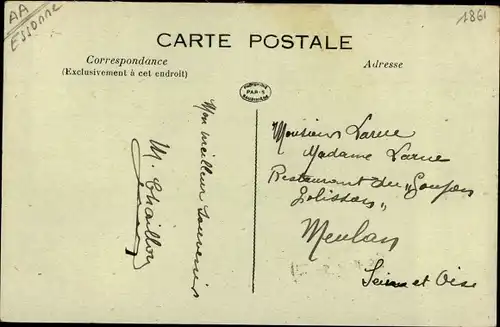 AA
ESSONNE
1861
CARTE POSTALE
Correspondance
(Exclusivement à cet endroit)
Adresse
PARIS
Mon meilleur souvenir
M. Chaillou
Monsieur Larue
Madame Larue
Restaurant du „Goujon
Folisson„
Meulan
Seine et Oise